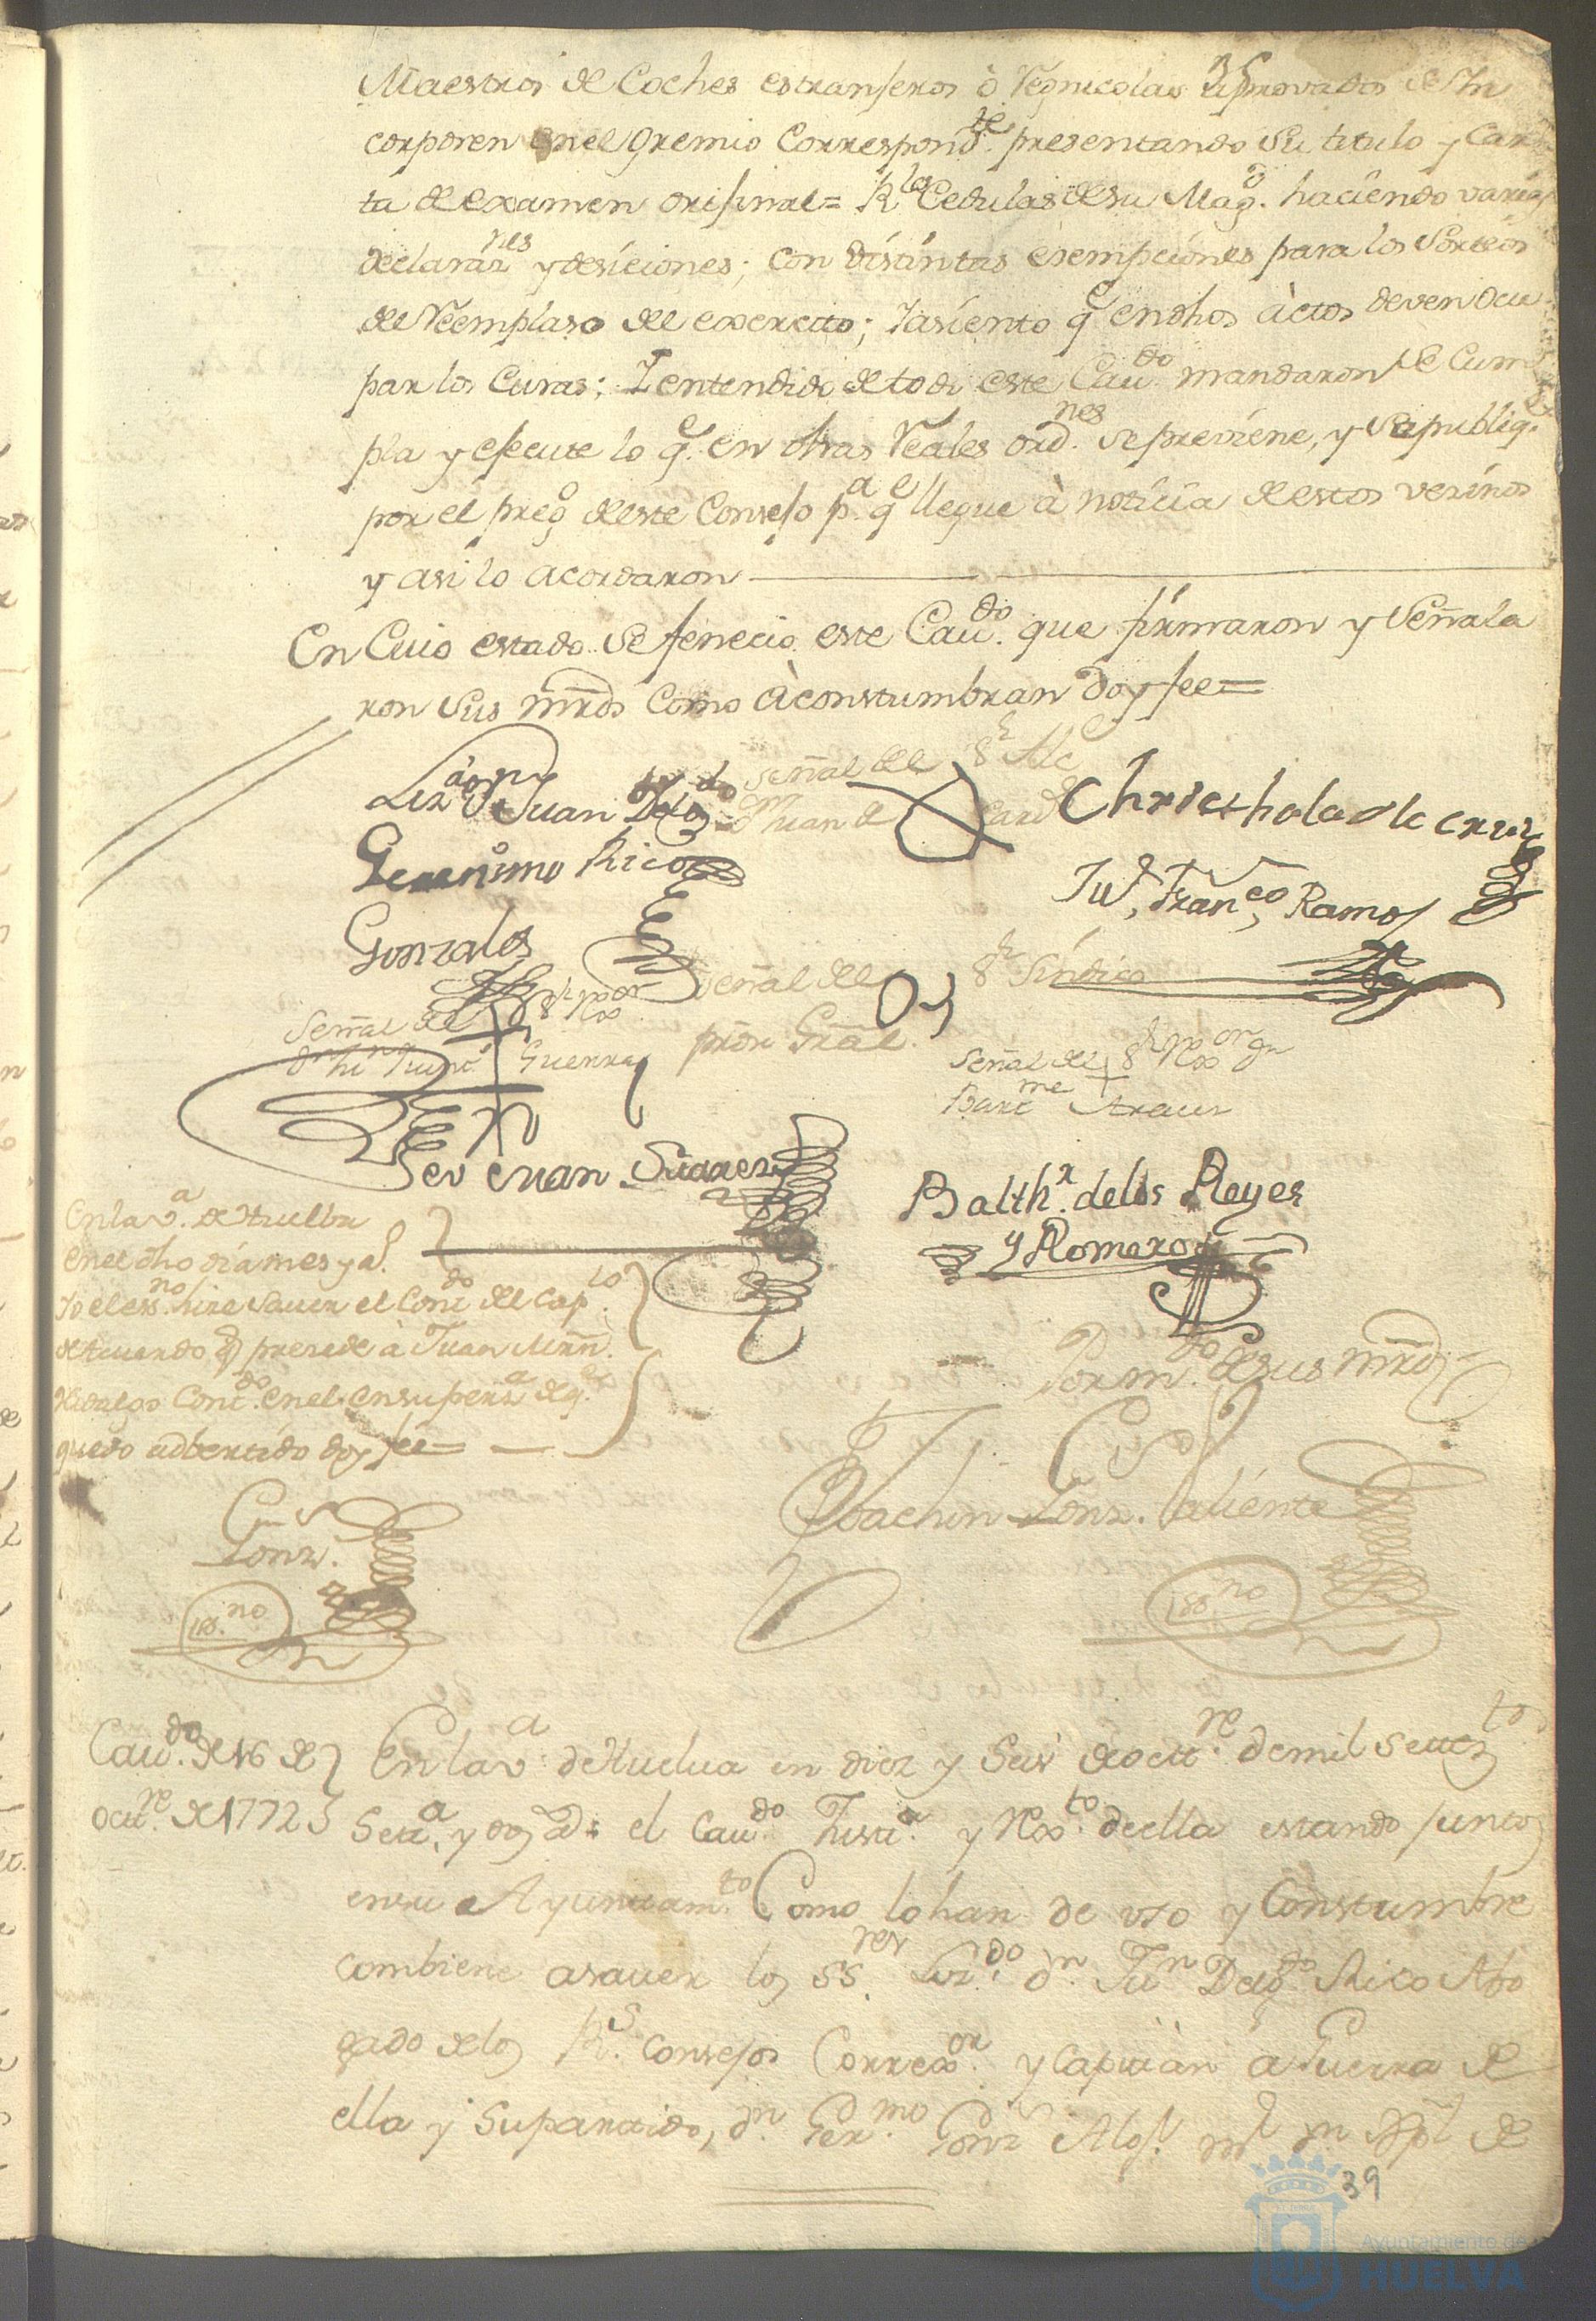 Maestros de Coches estranjeros ò Regnicolas aprovados se Yn
corporen en el Gremio Correspond.te presentando su titulo y Car
ta de examen orijinal= R.les Cedulas de su Mag.d haciendo varias
declaraz.nes y desiciones; con distintas esempciones para los Sorteos
de Reemplaso del exercito; Y asiento q.e en dhos àctos deven ocu
par los Curas; Y entendido de todo este Cau.do mandaron se Cum
pla y ejecute lo q.e en dhas Reales ord.nes se previene, y se publiq.e
por el preg.o de este Consejo p.a q.e llegue à noticia de estos vezinos
y asi lo acordaron
En Cuio estado se fenecio este Cau.do que firmaron y Señala
ron sus mrds Como àcostumbran doy fee=
Liz.do D.n Juan Delg.do
Señal del S.r Alc.e
Juan de Card
Christhobal de cruz
Geronimo Rico
Gonzales
Ju.n Fran.co Ramos
Señal del S.r Sindico
pror Gral.
Señal del S.r Rex.or
Guerra
Señal del S.r Rex.or
Bart.me Araus
Juan Suarez
Balth.r de los Reyes
y Romero
En la v.a de Huelba
en el dho dia mes y a.
Yo el ess.no hize saver el Cont.do del Cap.lo
de Acuerdo q precede à Juan Mrn.
Hidalgo Cont.do en el en su persz.a de q.e
quedo adbertido doy fee=
Por m.do de sus mrds
Joachin Gonz. Valiente
Gonz.
ess.no
ess.no
Cau.do de 16 de
Octt.re de 1772
En la v.a de Huelua en diez y Seis de octt.re de mil Settez.tos
Sett.a y dos a.s el Cau.do Justt.a y Rex.to de ella estando juntos
en su Ayuntam.to Como lo han de vso y Constumbre
combiene a sauer los SS.res Liz.do d.n Ju.n Delg.do Rico Abo
gado de los R.s Consejos Correx.or y Capitàn à Guerra de
ella y su partido, d.n Ger.mo Gonz
39
Ayuntamiento de
HUELVA